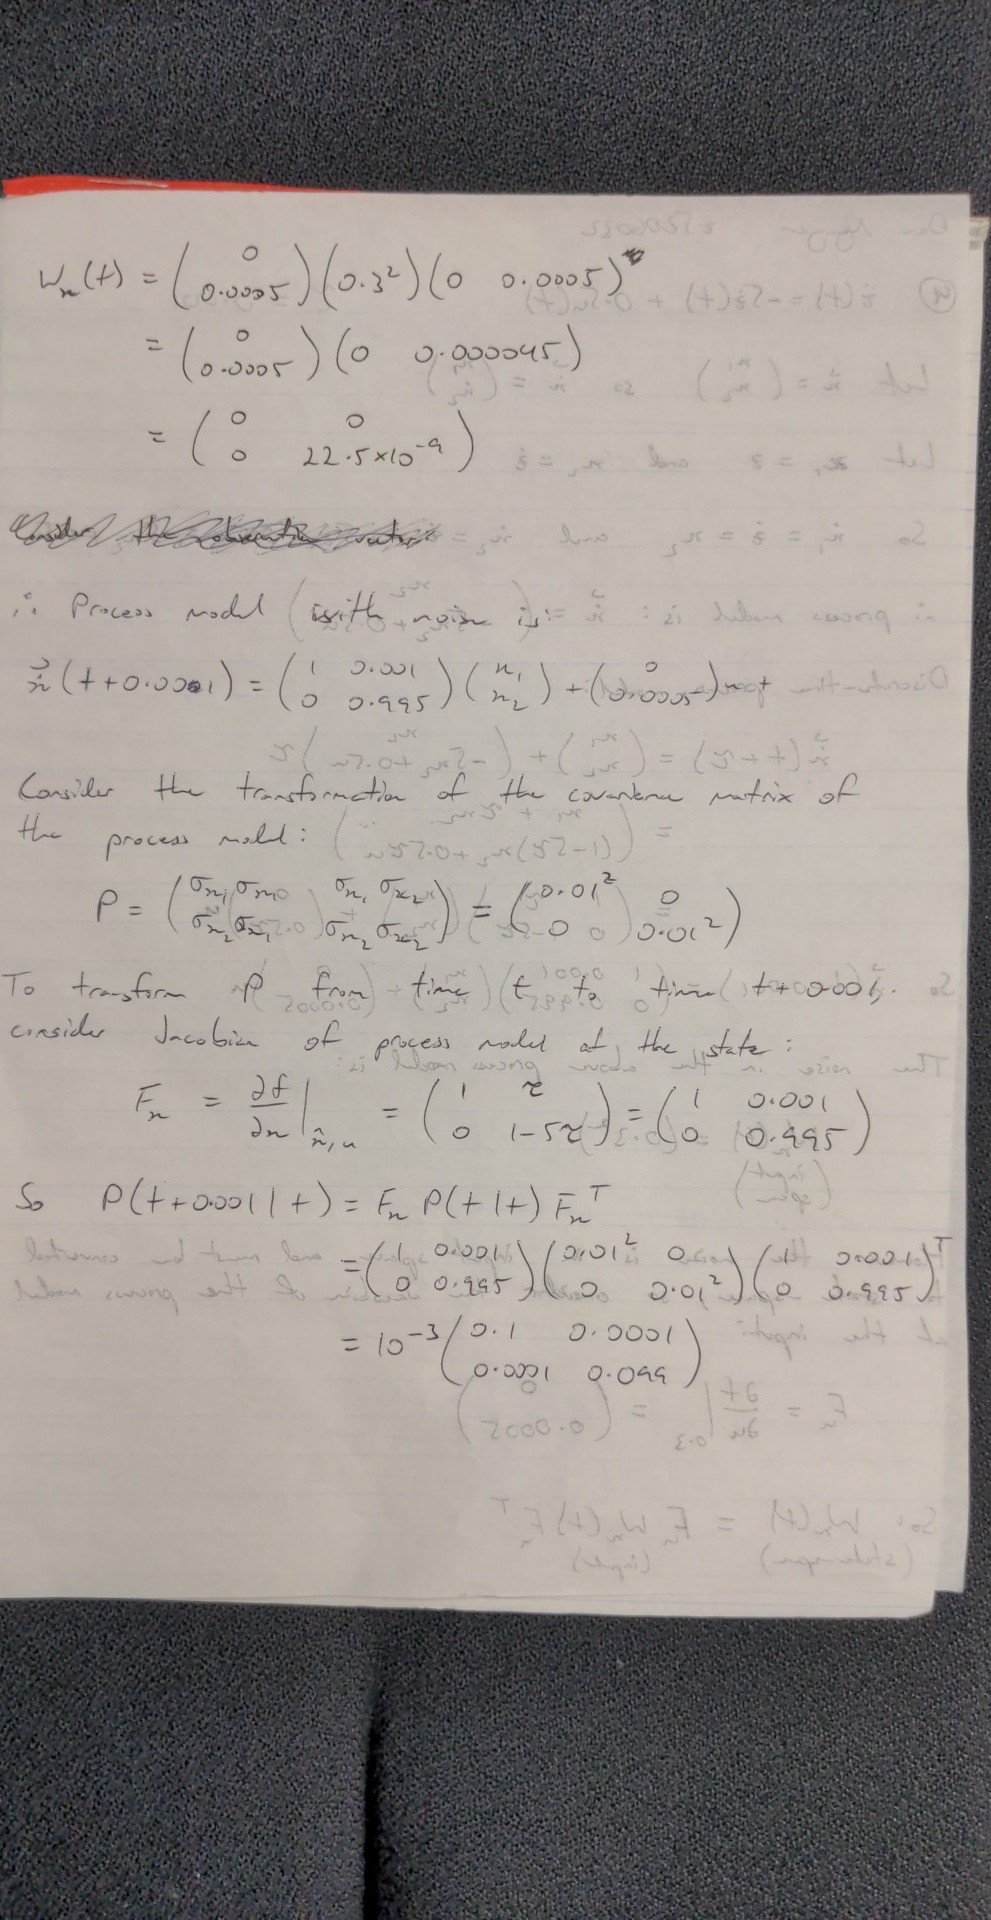 Wx(t) = (0; 0.0005)(0.3²)(0 0.0005)
= (0; 0.0005)(0 0.000045)
= (0 0; 0 22.5×10⁻⁹)
∴ Process model (with noise) is:
x⃗(t+0.001) = (1 0.001; 0 0.995)(x₁; x₂) + (0; 0.0005)u +
Consider the transformation of the covariance matrix of
the process model:
P = (σx₁σx₁ σx₁σx₂; σx₂σx₁ σx₂σx₂) = (0.01² 0; 0 0.01²)
To transform P from time t to time t+0.001.
consider Jacobian of process model at the state:
Fx = ∂f/∂x |x̂,u = (1 τ; 0 1-5τ) = (1 0.001; 0 0.995)
So P(t+0.001|t) = Fx P(t|t) Fxᵀ
= (1 0.001; 0 0.995)(0.01² 0; 0 0.01²)(1 0.001; 0 0.995)ᵀ
= 10⁻³(0.1 0.0001; 0.0001 0.099)